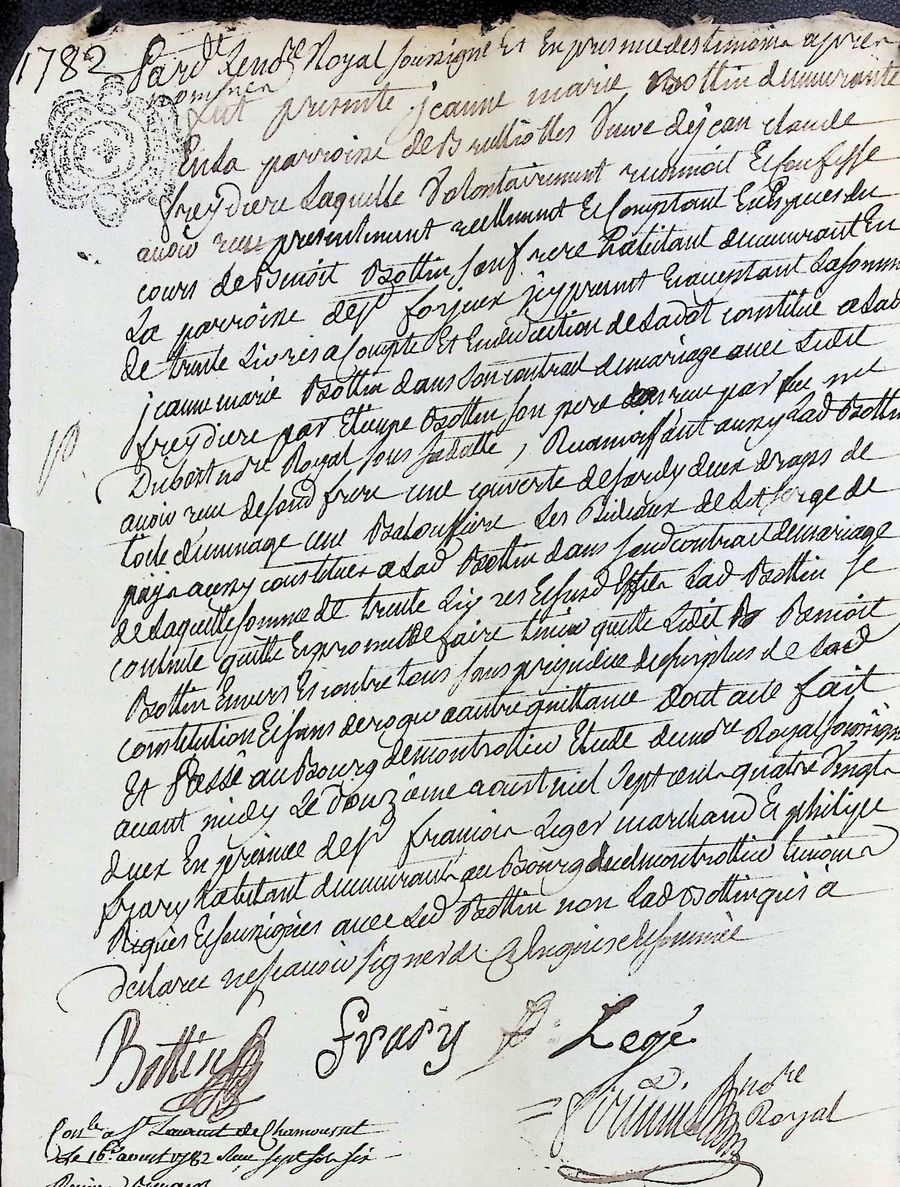 1782
Pard.t Le no.re Royal soussigné Et En presence des temoins apres
nommés
fut presente jeanne marie Bottin demeurante
En la parroisse de Brulliolles Veuve de jean claude
freydiere Laquelle Volontairement reconnoit Et confesse
avoir reçu presentement reellement Et Comptant En Espèces du
cours de Benoit Bottin son frere habitant demeurant En
La parroisse de S.t forjeux icy present Et acceptant La somme
de trente Livres a Compte Et En deduction de La dot constituée a Lad
jeanne marie Bottin dans son contrat de mariage avec Ledit
freydiere par Etienne Bottin son pere reçu par me
Dubost no.re Royal sous sa datte, Reconnoissant aussy Lad Bottin
avoir reçu de sond frere une couverte de deux draps de
toile de menage une Baloussiere Les Rideaux de Lit serge de
pays aussy constitués a Lad Bottin dans sond contrat de mariage
de Laquelle somme de trente Livres Et susd Effets Lad Bottin se
contente quitte Et promet de faire tenir quitte Ledit Benoit
Bottin Envers Et contre tous sans prejudice du surplus de Lad
constitution Et sans deroger a autre quittance Dont acte fait
Et Passé au Bourg de montrottier Etude du no.re Royal soussigné
avant midy Le douzième aoust mil sept cent quatre Vingt
deux En presence de S.r françois Leger marchand Et philipe
frary habitant demeurants au Bourg dud montrottier temoins
Requis Et soussignés avec Led Bottin non Lad Bottin qui a
declaré ne sçavoir signer de Enquise Et sommée
Bottin frary Legé
no.re
Royal
Con.le a S.t Laurent de Chamousset
Le 16.e aout 1782 Reçu sept sols six